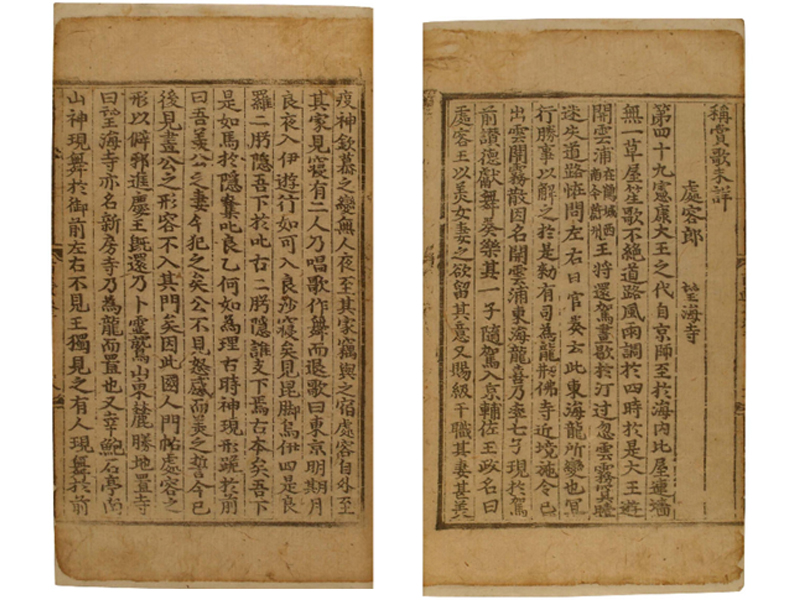 稱賞歌未詳
處容郎 望海寺
第四十九憲康大王之代自京師至於海內比屋連墻
無一草屋笙歌不絶道路風雨調於四時於是大王遊
開雲浦在鶴城西南今蔚州王將還駕晝歇於汀过忽雲霧冥曀
迷失道路怪問左右日官奏云此東海龍所變也冝
行勝事以解之於是勑有司為龍刱佛寺近境施令已
出雲開霧散因名開雲浦東海龍喜乃率七子現於駕
前讃德獻舞奏樂其一子隨駕入京輔佐王政名曰
處容王以美女妻之欲留其意又賜級干職其妻甚美
疫神欽慕之變無人夜至其家竊與之宿處容自外至
其家見寢有二人乃唱歌作舞而退歌曰東京明期月
良夜入伊遊行如可入良沙寢矣見昆脚烏伊四是良
羅二肹隱吾下於叱古二肹隱誰支下焉古本矣吾下
是如馬於隱奪叱良乙何如為理古時神現形跪於前
曰吾羨公之妻今犯之矣公不見怒感而美之誓今已
後見畫公之形容不入其門矣因此國人門帖處容之
形以僻邪進慶王旣還乃卜靈鷲山東麓勝地置寺
曰望海寺亦名新房寺乃為龍而置也又幸鮑石亭南
山神現舞於御前左右不見王獨見之有人現舞於前